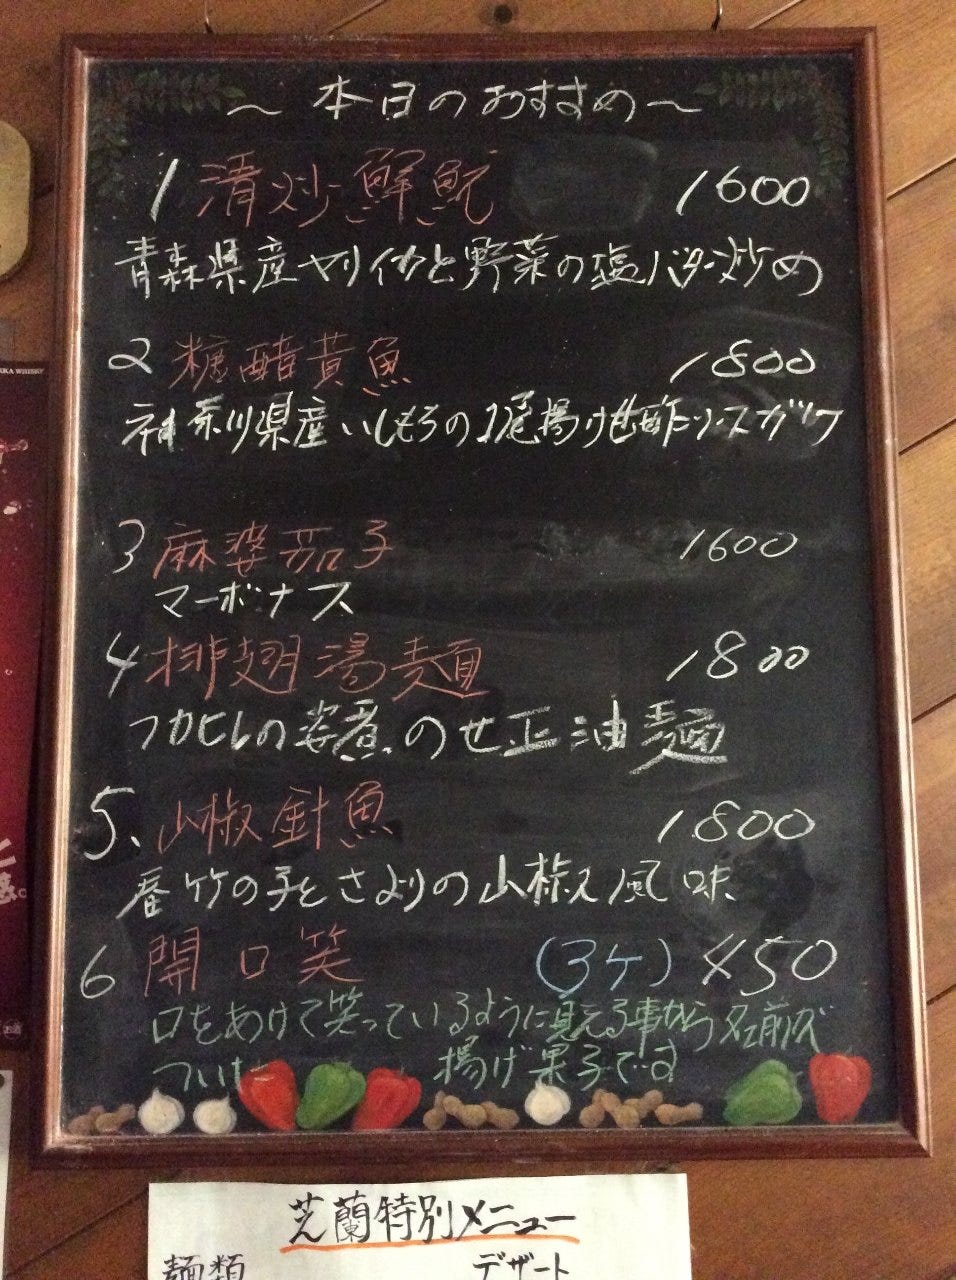 〜本日のおすすめ〜
1 清炒鮮魷 1600
青森県産ヤリイカと野菜の塩バター炒め
2 糖醋黄魚 1800
神奈川県産いしもちの1尾揚げ甘酢ソースガケ
3 麻婆茄子 1600
マーボナス
4 排翅湯麺 1800
フカヒレの姿煮のせ正油麺
5、山椒針魚 1800
春竹の子とさよりの山椒風味
6 開口笑 (3ケ) 450
口をあけて笑っているように見える事から名前が
ついた 揚げ菓子です
KKA WHISKY
芝蘭特別メニュー
麺類 デザート